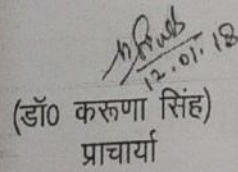 12.01.18
(डॉ0 करूणा सिंह)
प्राचार्या